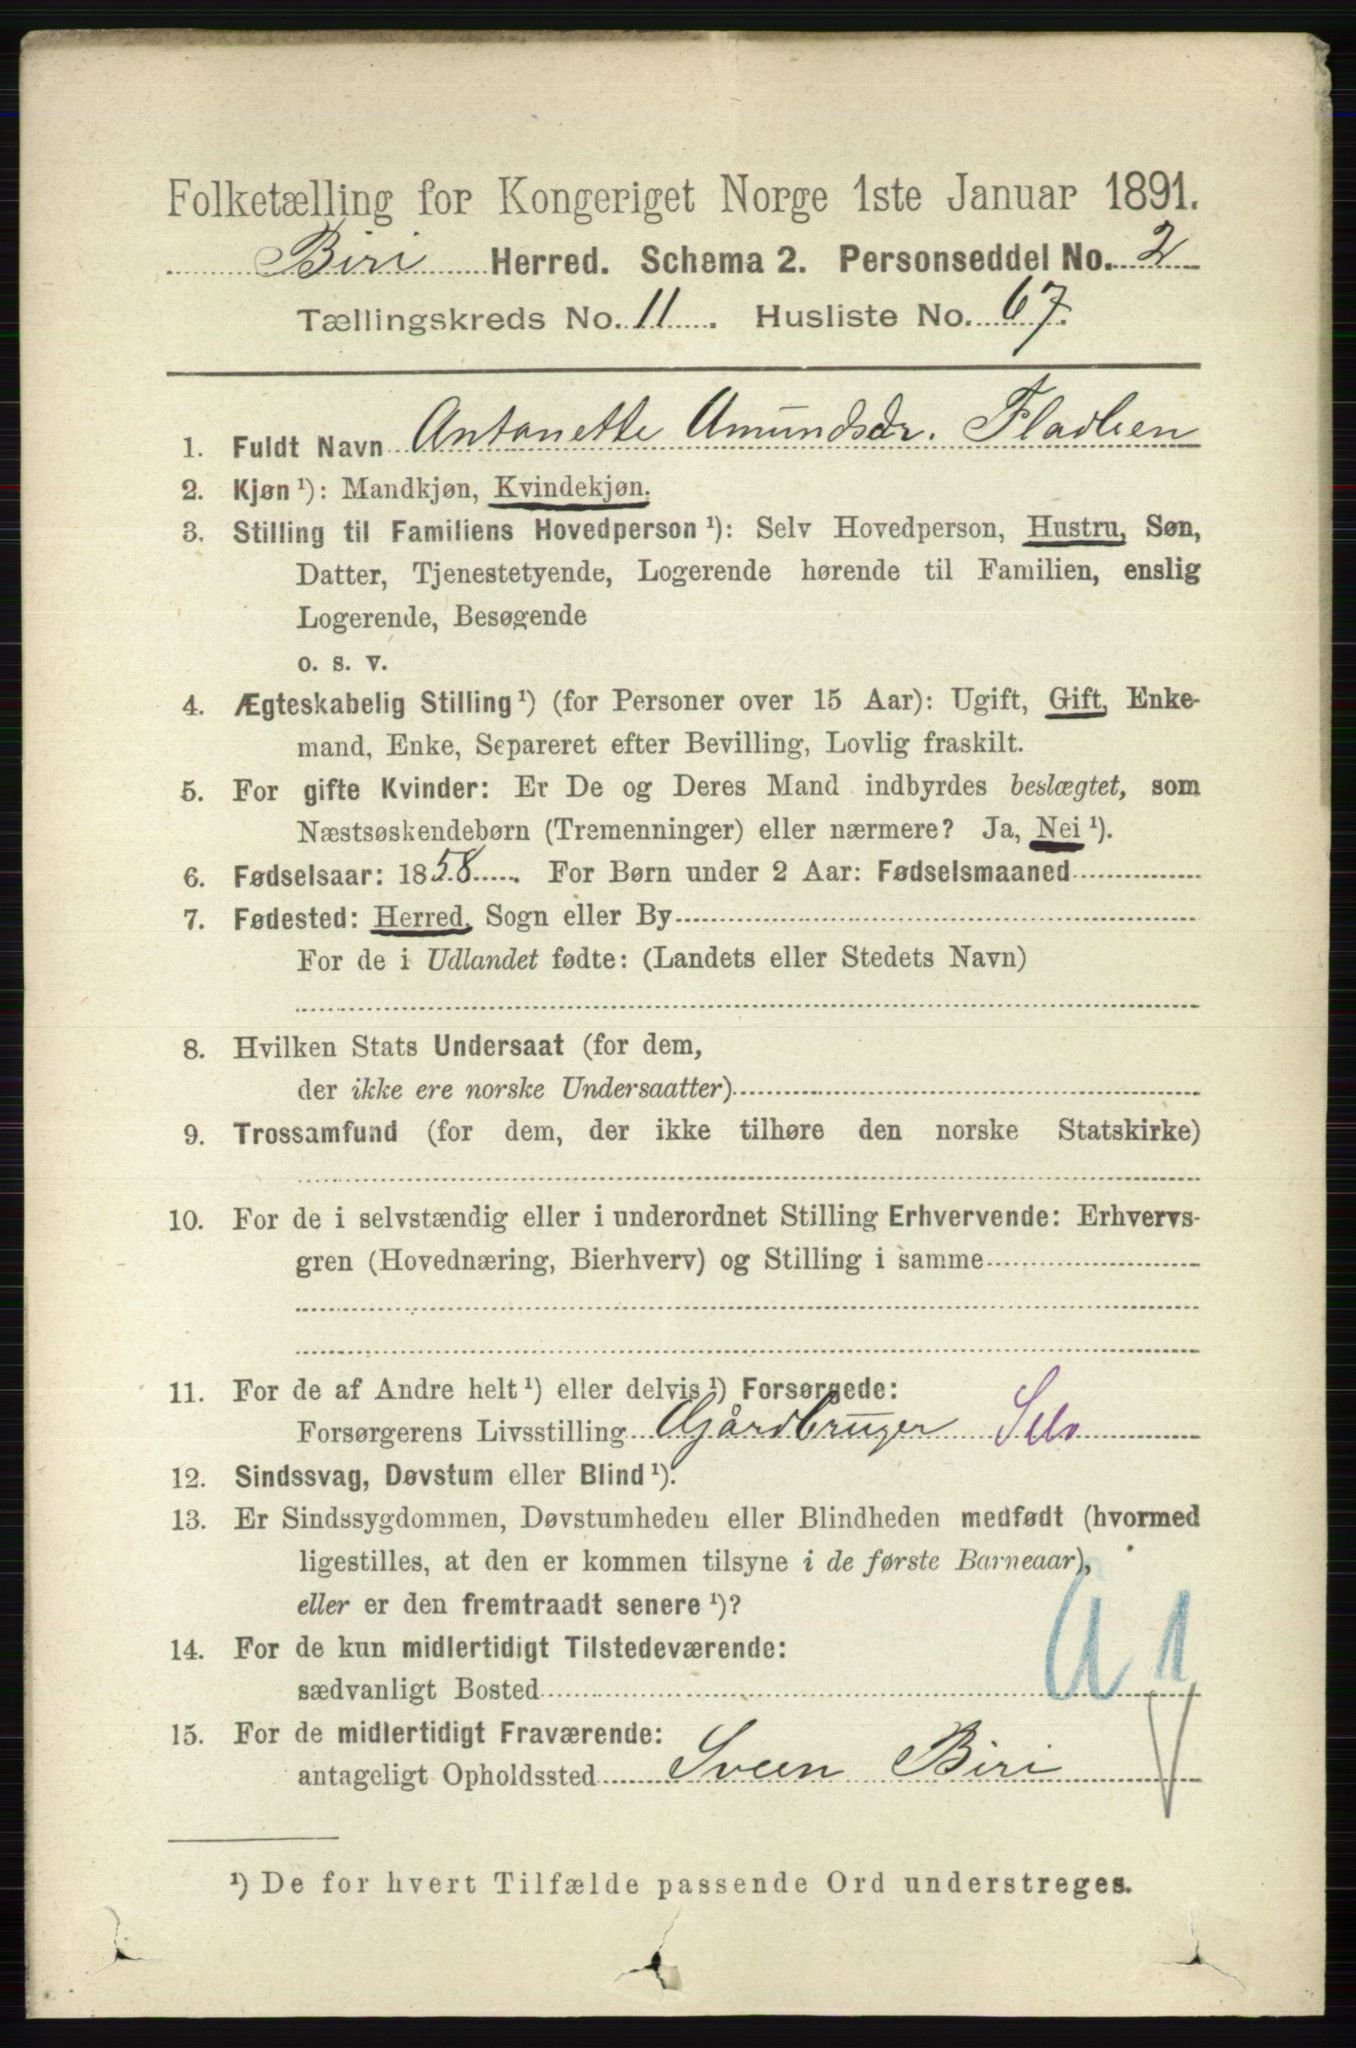 Folketælling for Kongeriget Norge 1ste Januar 1891.
Biri Herred. Schema 2. Personseddel No. 2
Tællingskreds No. 11. Husliste No. 67.
1. Fuldt Navn Antonette Amundsdr. Fladlien
2. Kjøn ¹): Mandkjøn, Kvindekjøn.
3. Stilling til Familiens Hovedperson ¹): Selv Hovedperson, Hustru, Søn,
Datter, Tjenestetyende, Logerende hørende til Familien, enslig
Logerende, Besøgende
o. s. v.
4. Ægteskabelig Stilling ¹) (for Personer over 15 Aar): Ugift, Gift, Enke-
mand, Enke, Separeret efter Bevilling, Lovlig fraskilt.
5. For gifte Kvinder: Er De og Deres Mand indbyrdes beslægtet, som
Næstsøskendebørn (Tremenninger) eller nærmere? Ja, Nei ¹).
6. Fødselsaar: 1858. For Børn under 2 Aar: Fødselsmaaned
7. Fødested: Herred, Sogn eller By
For de i Udlandet fødte: (Landets eller Stedets Navn)
8. Hvilken Stats Undersaat (for dem,
der ikke ere norske Undersaatter)
9. Trossamfund (for dem, der ikke tilhøre den norske Statskirke)
10. For de i selvstændig eller i underordnet Stilling Erhvervende: Erhvervs-
gren (Hovednæring, Bierhverv) og Stilling i samme
11. For de af Andre helt ¹) eller delvis ¹) Forsørgede:
Forsørgerens Livsstilling Gjårdbruger Selv
12. Sindssvag, Døvstum eller Blind ¹).
13. Er Sindssygdommen, Døvstumheden eller Blindheden medfødt (hvormed
ligestilles, at den er kommen tilsyne i de første Barneaar),
eller er den fremtraadt senere ¹)?
14. For de kun midlertidigt Tilstedeværende:
sædvanligt Bosted
15. For de midlertidigt Fraværende:
antageligt Opholdssted Sveen Biri
¹) De for hvert Tilfælde passende Ord understreges.